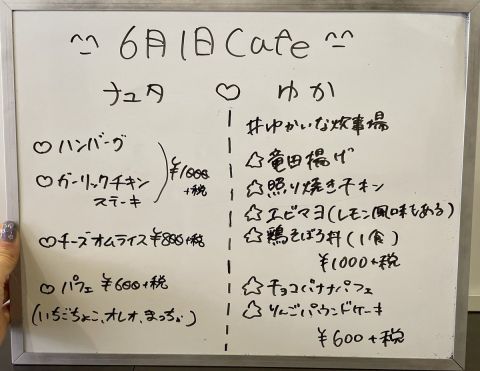 ^^ 6月1日Cafe ^^
ナユタ ♡ ゆか
♡ ハンバーグ
♡ ガーリックチキン
ステーキ
¥1000
+税
♡ チーズオムライス ¥800+税
♡ パフェ ¥600+税
(いちごちょこ、オレオ、まっちゃ)
#ゆかいな炊事場
☆ 竜田揚げ
☆ 照り焼きチキン
☆ エビマヨ(レモン風味もある)
☆ 鶏そぼろ丼(1食)
¥1000+税
☆ チョコバナナパフェ
☆ りんごパウンドケーキ
¥600+税